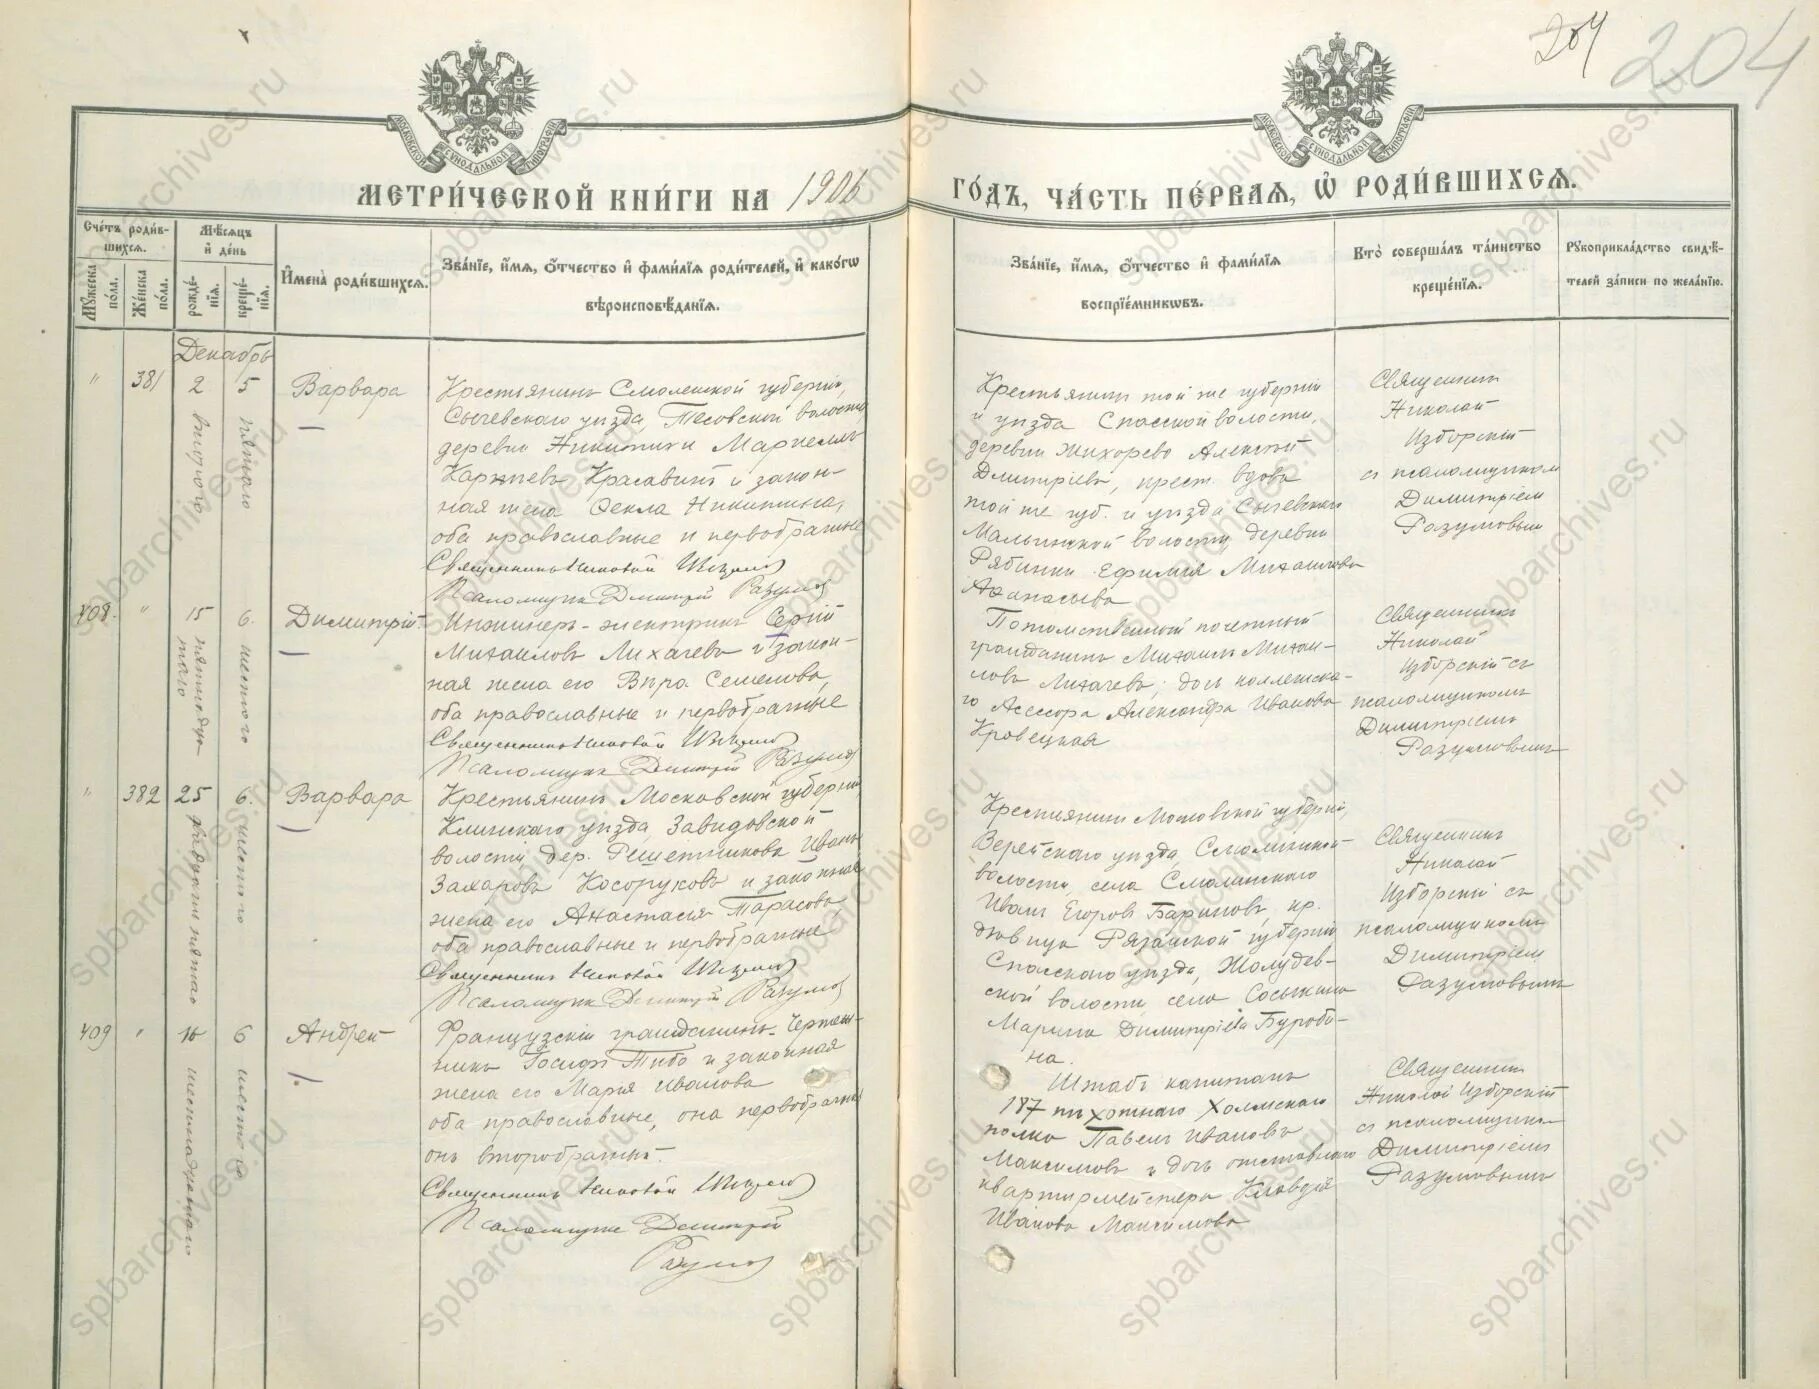 204
204
МОСКОВСКОЙ СѴНОДАЛЬНОЙ ТИПОГРАФІИ
МОСКОВСКОЙ СѴНОДАЛЬНОЙ ТИПОГРАФІИ
МЕТРИ́ЧЕСКОЙ КНИ́ГИ НА 1906
ГО́ДЪ, ЧА́СТЬ ПЕ́РВАЯ, Ѽ РОДИ́ВШИХСЯ.
Сче́тъ роди́в-
шихся.
Му́жеска по́ла.
Же́нска по́ла.
Мѣ́сяцъ и де́нь
рожде́нія.
креще́нія.
И҆мена̀ роди́вшихся.
Зва́ніе, и҆́мя, ѻ҆́тчество и҆ фами́лія роди́телей, и҆ како́гѡ
вѣроисповѣ́данія.
Зва́ніе, и҆́мя, ѻ҆́тчество и҆ фами́лія
воспріе́мникѡвъ.
Кто̀ соверша́лъ та́инство
креще́нія.
Рꙋкоприкла́дство свидѣ́-
телей за́писи по жела́нію.
Декабрь
" 381 2 5 Варвара
второго
пятаго
Крестьянинъ Смоленской губерніи,
Сычевскаго уѣзда, Тесовской волости,
деревни Никитинки
Красавинъ и закон-
ная жена Ѳекла Никитина,
оба православные и первобрачные
Священникъ Николай Изборскій
Псаломщикъ Димитрій Разумов
Крестьянинъ той же губерніи
и уѣзда Спасской волости,
деревни Жихорево Алексѣй
Димитріевъ, крест. вдова
той же губ. и уѣзда Сычевскаго
волости, деревни
Рябинки Ефимія Михаилова
Аѳанасьева
Священникъ
Николай
Изборскій
съ псаломщикомъ
Димитріемъ
Разумовымъ
408. " 15 6. Димитрій.
пятнадца-
таго
шестого
Инженеръ-электрикъ Сергій
Михаиловъ Лихачевъ и закон-
ная жена его Вѣра Семенова,
оба православные и первобрачные
Священникъ Николай Изборскій
Псаломщикъ Димитрій Разумов
Потомственный почетный
гражданинъ Михаилъ Михаи-
ловъ Лихачевъ; дочь коллежска-
го Асессора Александра Иванова
Кровецкая
Священникъ
Николай
Изборскій съ
псаломщикомъ
Димитріемъ
Разумовымъ
" 382 25 6. Варвара
двадцать пятаго
шестого
Крестьянинъ Московской губерніи,
Клинскаго уѣзда, Завидовской
волости, дер. Решетникова Иванъ
Захаровъ Косоруковъ и законная
жена его Анастасія Тарасова
оба православные и первобрачные
Священникъ Николай Изборскій
Псаломщикъ Димитрій Разумов
Крестьянинъ Московской губерніи,
Верейскаго уѣзда, Смолинской
волости, села Смолинскаго
Иванъ Егоровъ Бариновъ, кр.
дѣвица Рязанской губерніи
Спасскаго уѣзда, Жолудев-
ской волости, села Сосыкина
Марина Димитріева Буроби-
на.
Священникъ
Николай
Изборскій съ
псаломщикомъ
Димитріемъ
Разумовымъ
409 " 16 6 Андрей
шестнадцатаго
шестого
Французскій гражданинъ-чертеж-
никъ Іосифъ Тибо и законная
жена его Марія Иванова
оба православные, она первобрачная
онъ второбрачный.
Священникъ Николай Изборскій
Псаломщикъ Димитрій
Разумов
Штабъ капитанъ
187 пѣхотнаго Холмскаго
полка Павелъ Ивановъ
Максимовъ и дочь отставнаго
квартирмейстера Клавдія
Иванова Максимова
Священникъ
Николай Изборскій
съ псаломщикомъ
Димитріемъ
Разумовымъ
spbarchives.ru